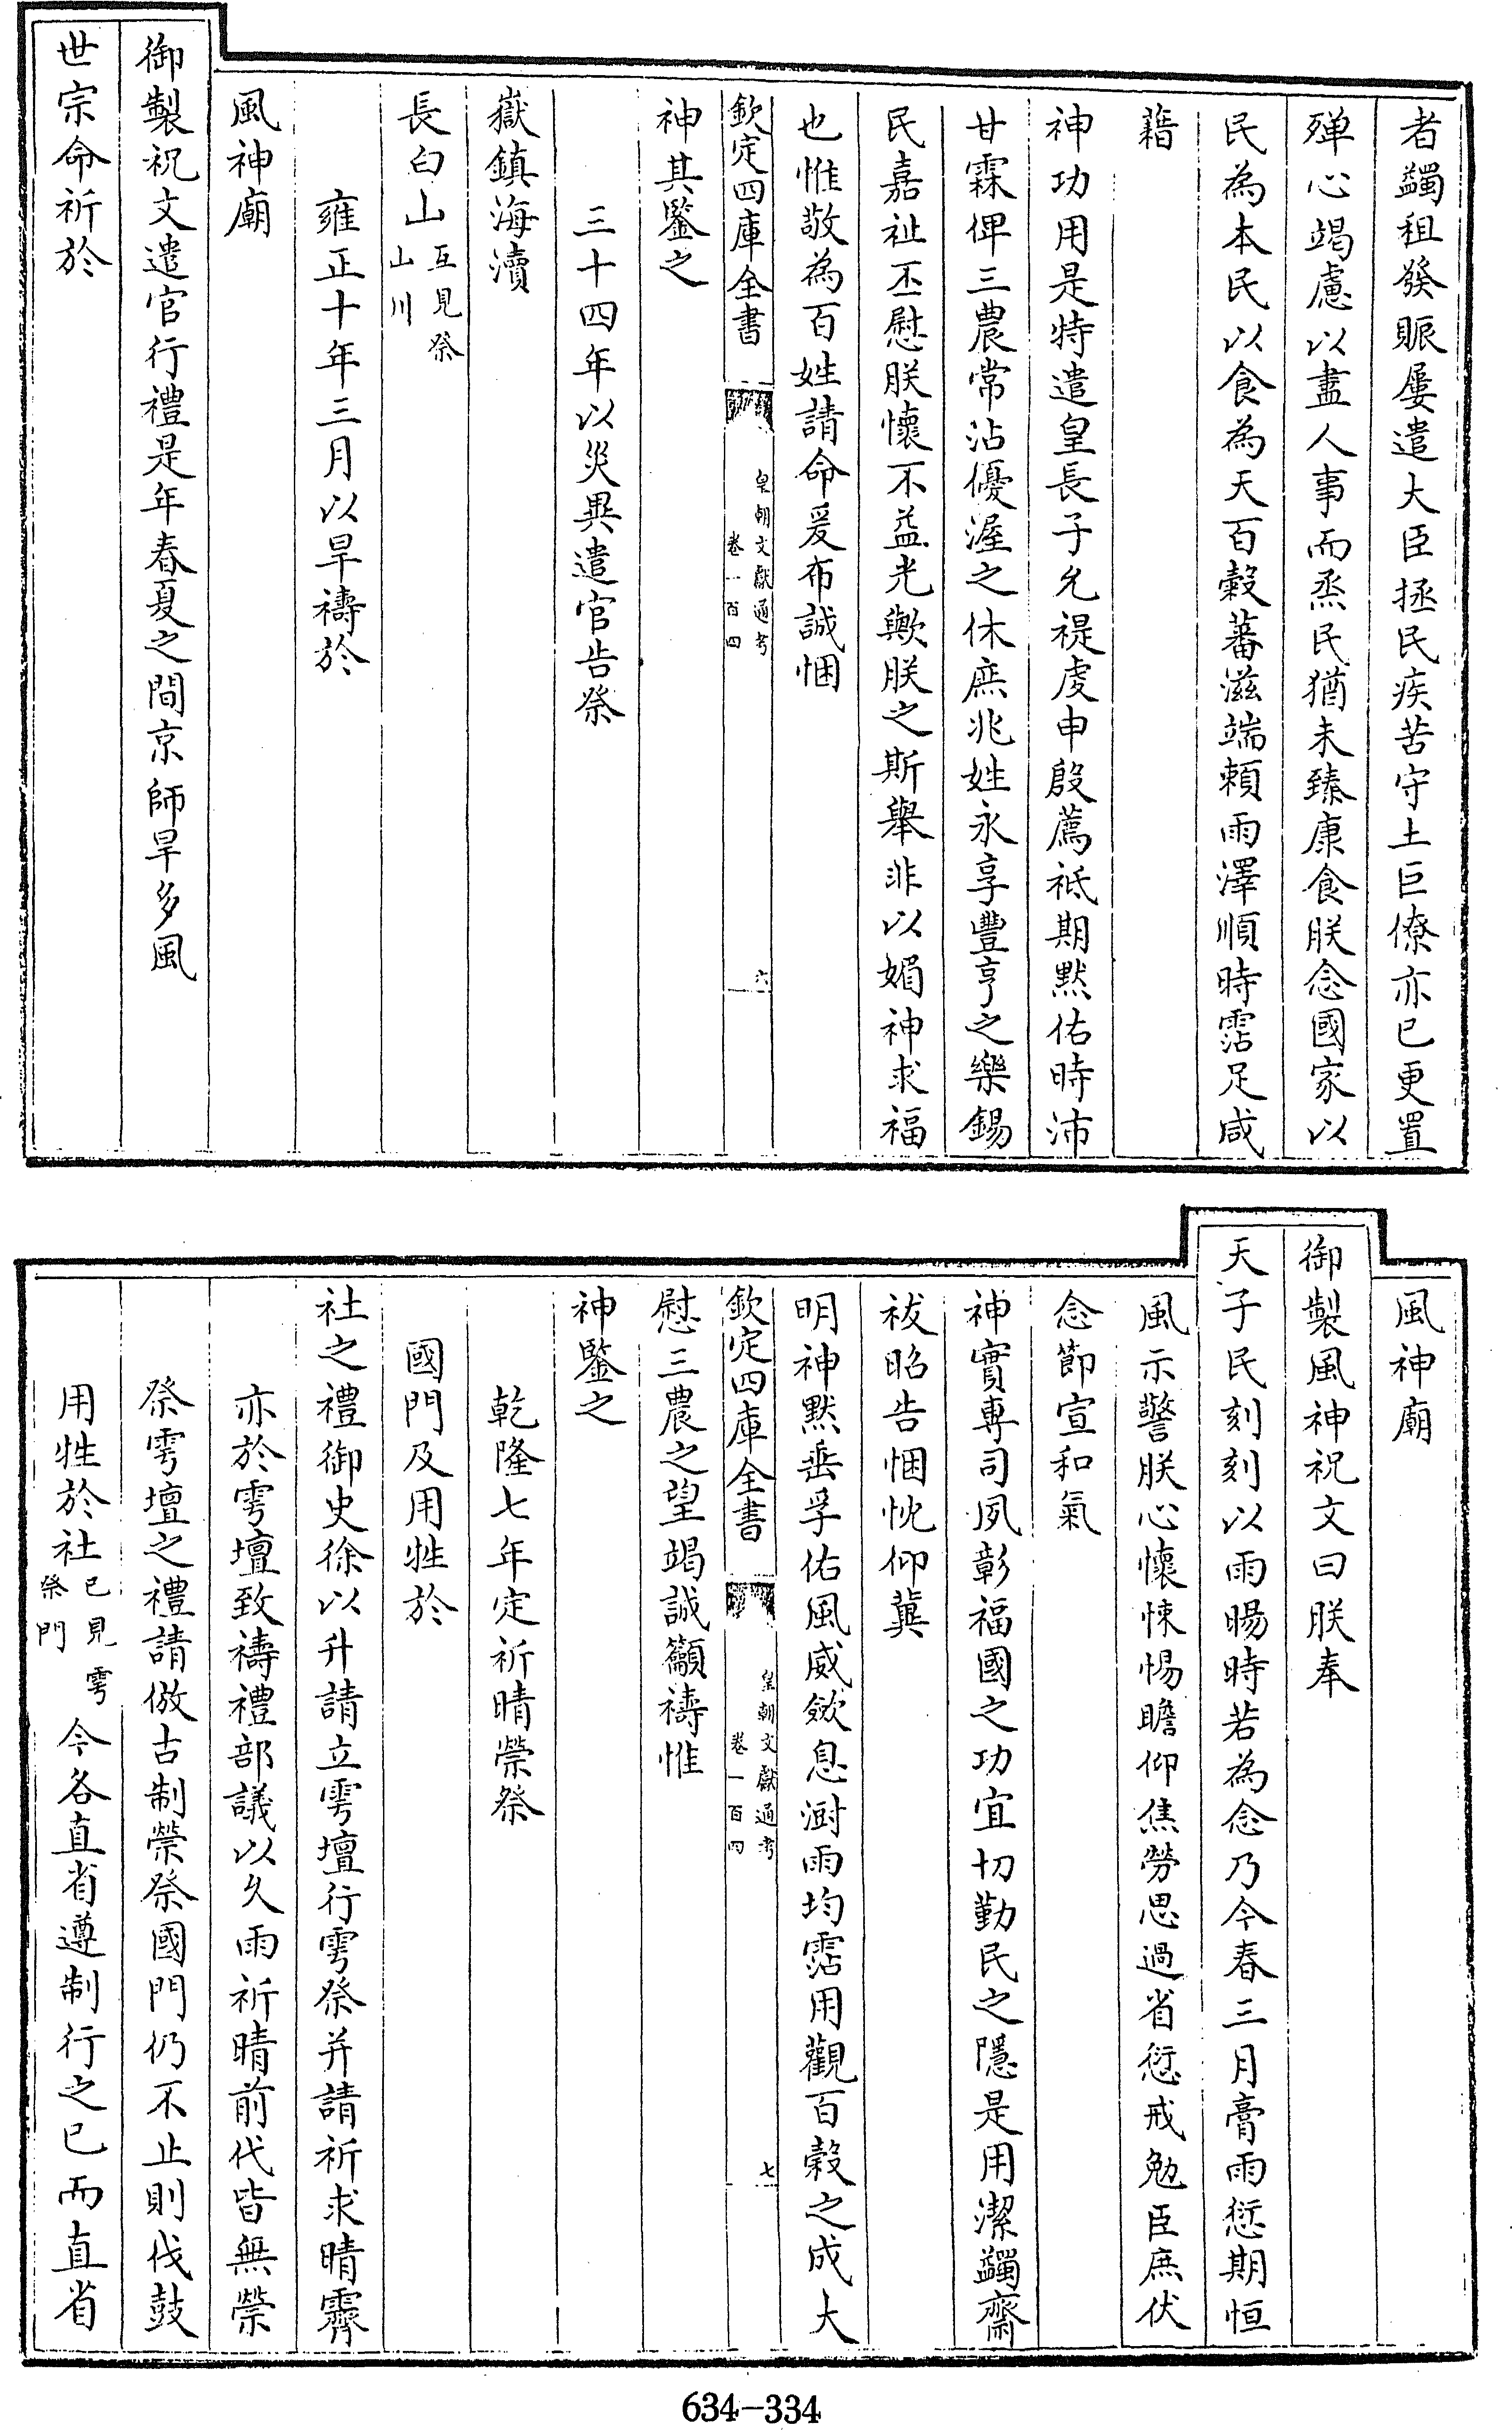 者蠲租發賑屢遣大臣拯民疾苦守土巨僚亦已更置
殫心竭慮以盡人事而烝民猶未臻康食朕念國家以
民為本民以食為天百穀蕃滋端賴雨澤順時霑足咸
藉
神功用是特遣皇長子允禔虔申殷薦祗期默佑時沛
甘霖俾三農常沾優渥之休庶兆姓永享豐亨之樂錫
民嘉祉丕慰朕懷不益光歟朕之斯舉非以媚神求福
也惟敬為百姓請命爰布誠悃
欽定四庫全書
皇朝文獻通考
卷一百四
六
神其鑒之
三十四年以災異遣官告祭
嶽鎮海瀆
長白山互見祭
山川
雍正十年三月以旱禱於
風神廟
御製祝文遣官行禮是年春夏之間京師旱多風
世宗命祈於
風神廟
御製風神祝文曰朕奉
天子民刻刻以雨暘時若為念乃今春三月膏雨愆期恒
風示警朕心懷悚惕瞻仰焦勞思過省愆戒勉臣庶伏
念節宣和氣
神實專司夙彰福國之功宜切勤民之隱是用潔蠲齋
祓昭告悃忱仰冀
明神默垂孚佑風威歛息澍雨均霑用觀百穀之成大
欽定四庫全書
皇朝文獻通考
卷一百四
七
慰三農之望竭誠籲禱惟
神鑒之
乾隆七年定祈晴禜祭
國門及用牲於
社之禮御史徐以升請立雩壇行雩祭并請祈求晴霽
亦於雩壇致禱禮部議以久雨祈晴前代皆無禜
祭雩壇之禮請倣古制禜祭國門仍不止則伐鼓
用牲於社已見雩
祭門今各直省遵制行之已而直省
634-334